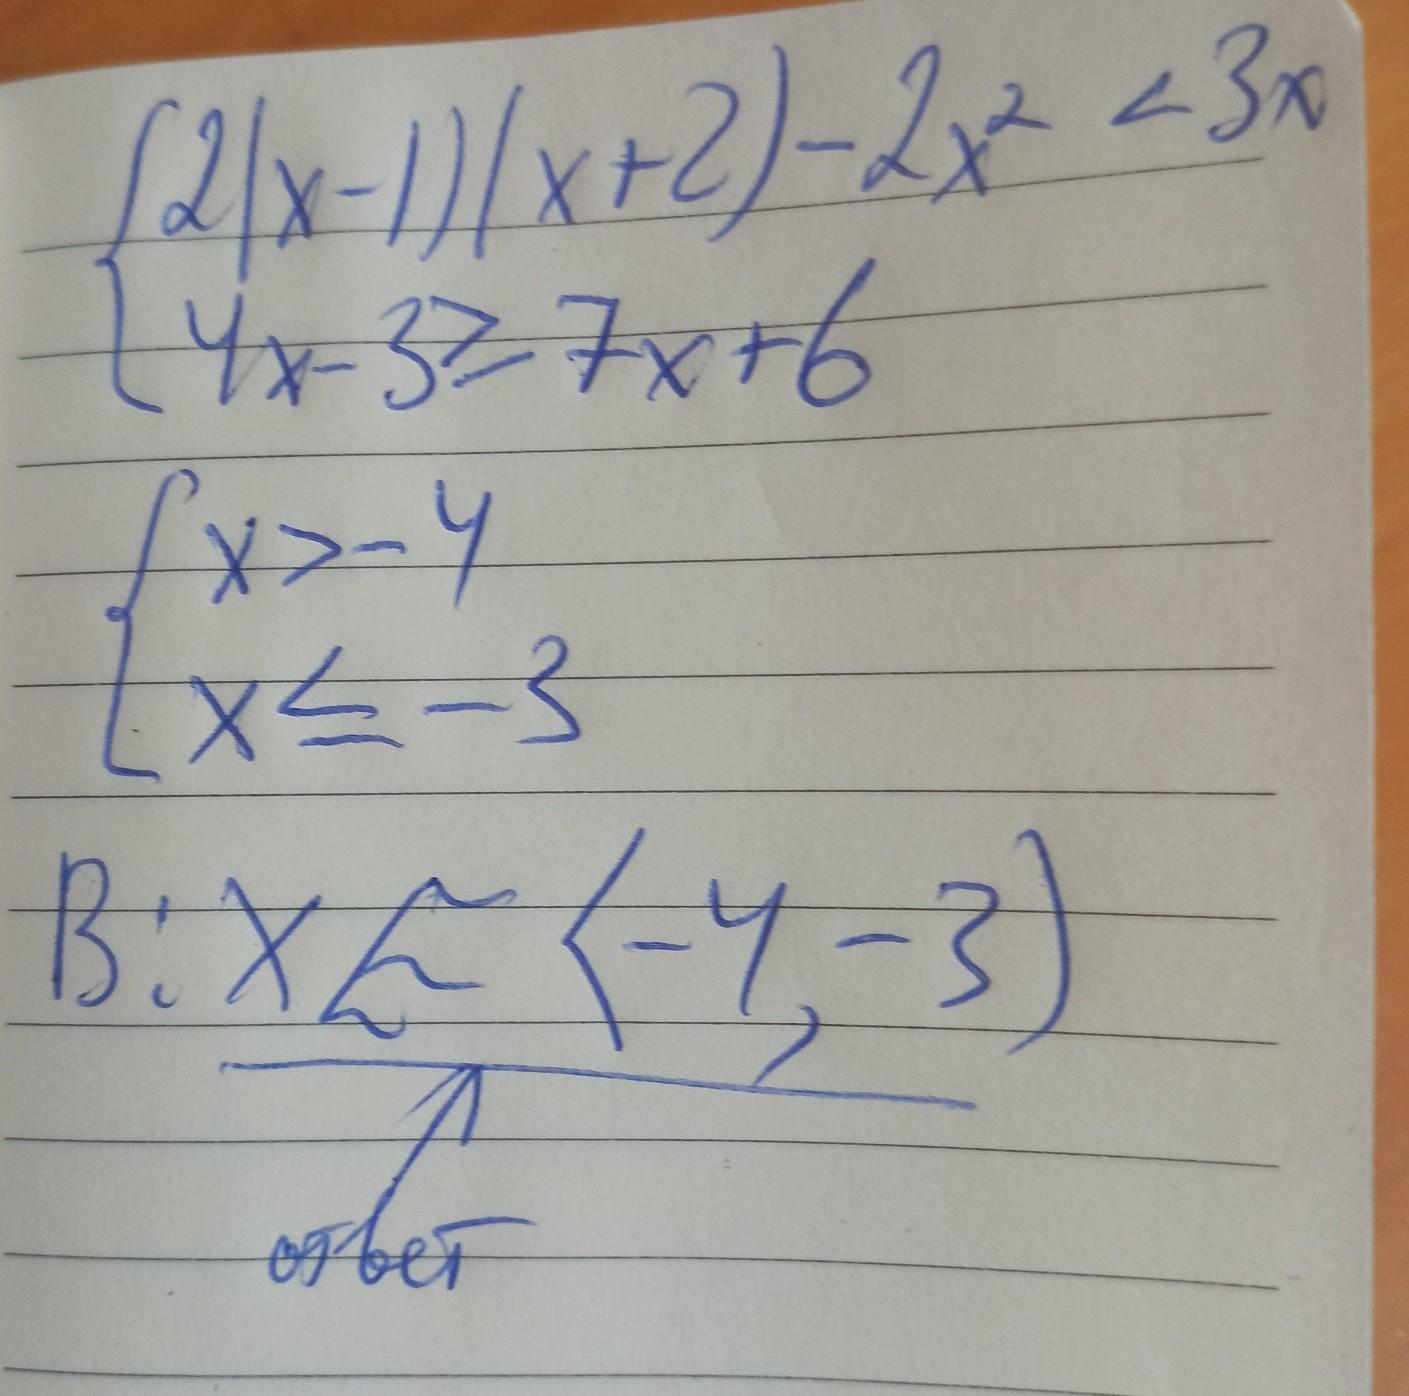 2(x-1)(x+2)-2x² <3x
4x-3≥7x+6
x>-4
x≤-3
B: x ∈ (-4,-3)
ответ